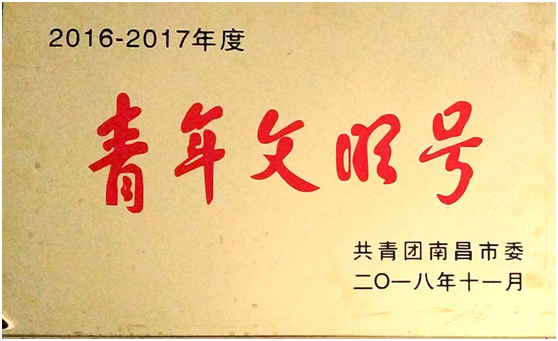 2016-2017年度
青年文明号
共青团南昌市委
二〇一八年十一月